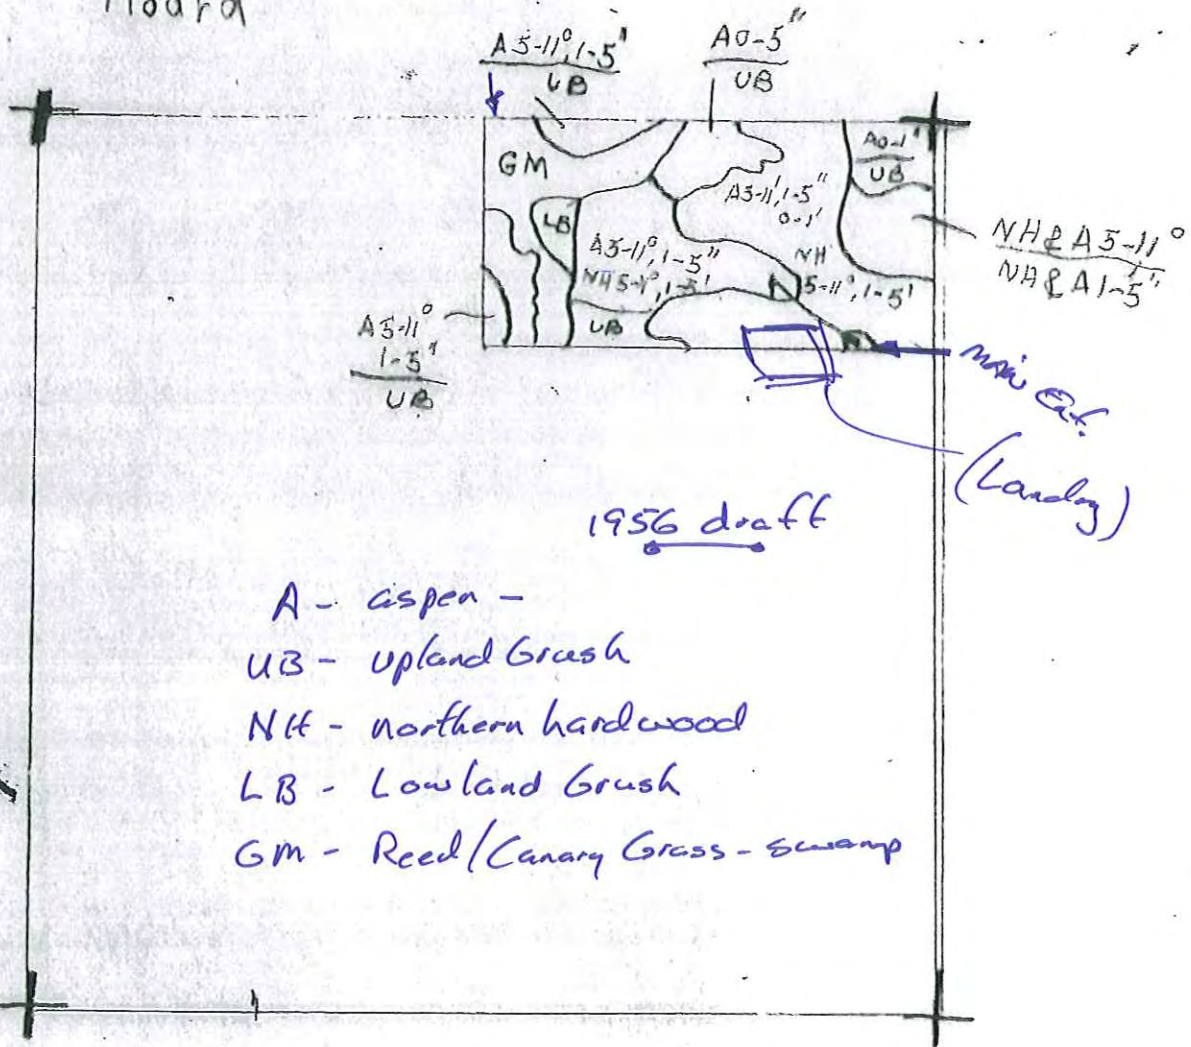 A5-11°, 1-5"
UB
A0-5"
UB
GM
A0-1"
UB
A5-11', 1-5"
0-1'
LB
A5-11°, 1-5"
NH5-11°, 1-5'
NH
5-11°, 1-5'
NH & A 5-11°
NH & A 1-5"
UB
A5-11°
1-5"
UB
main Ent.
(Landing)
1956 draft
A - aspen -
UB - upland Brush
NH - northern hardwood
LB - Lowland Brush
GM - Reed/Canary Grass - swamp